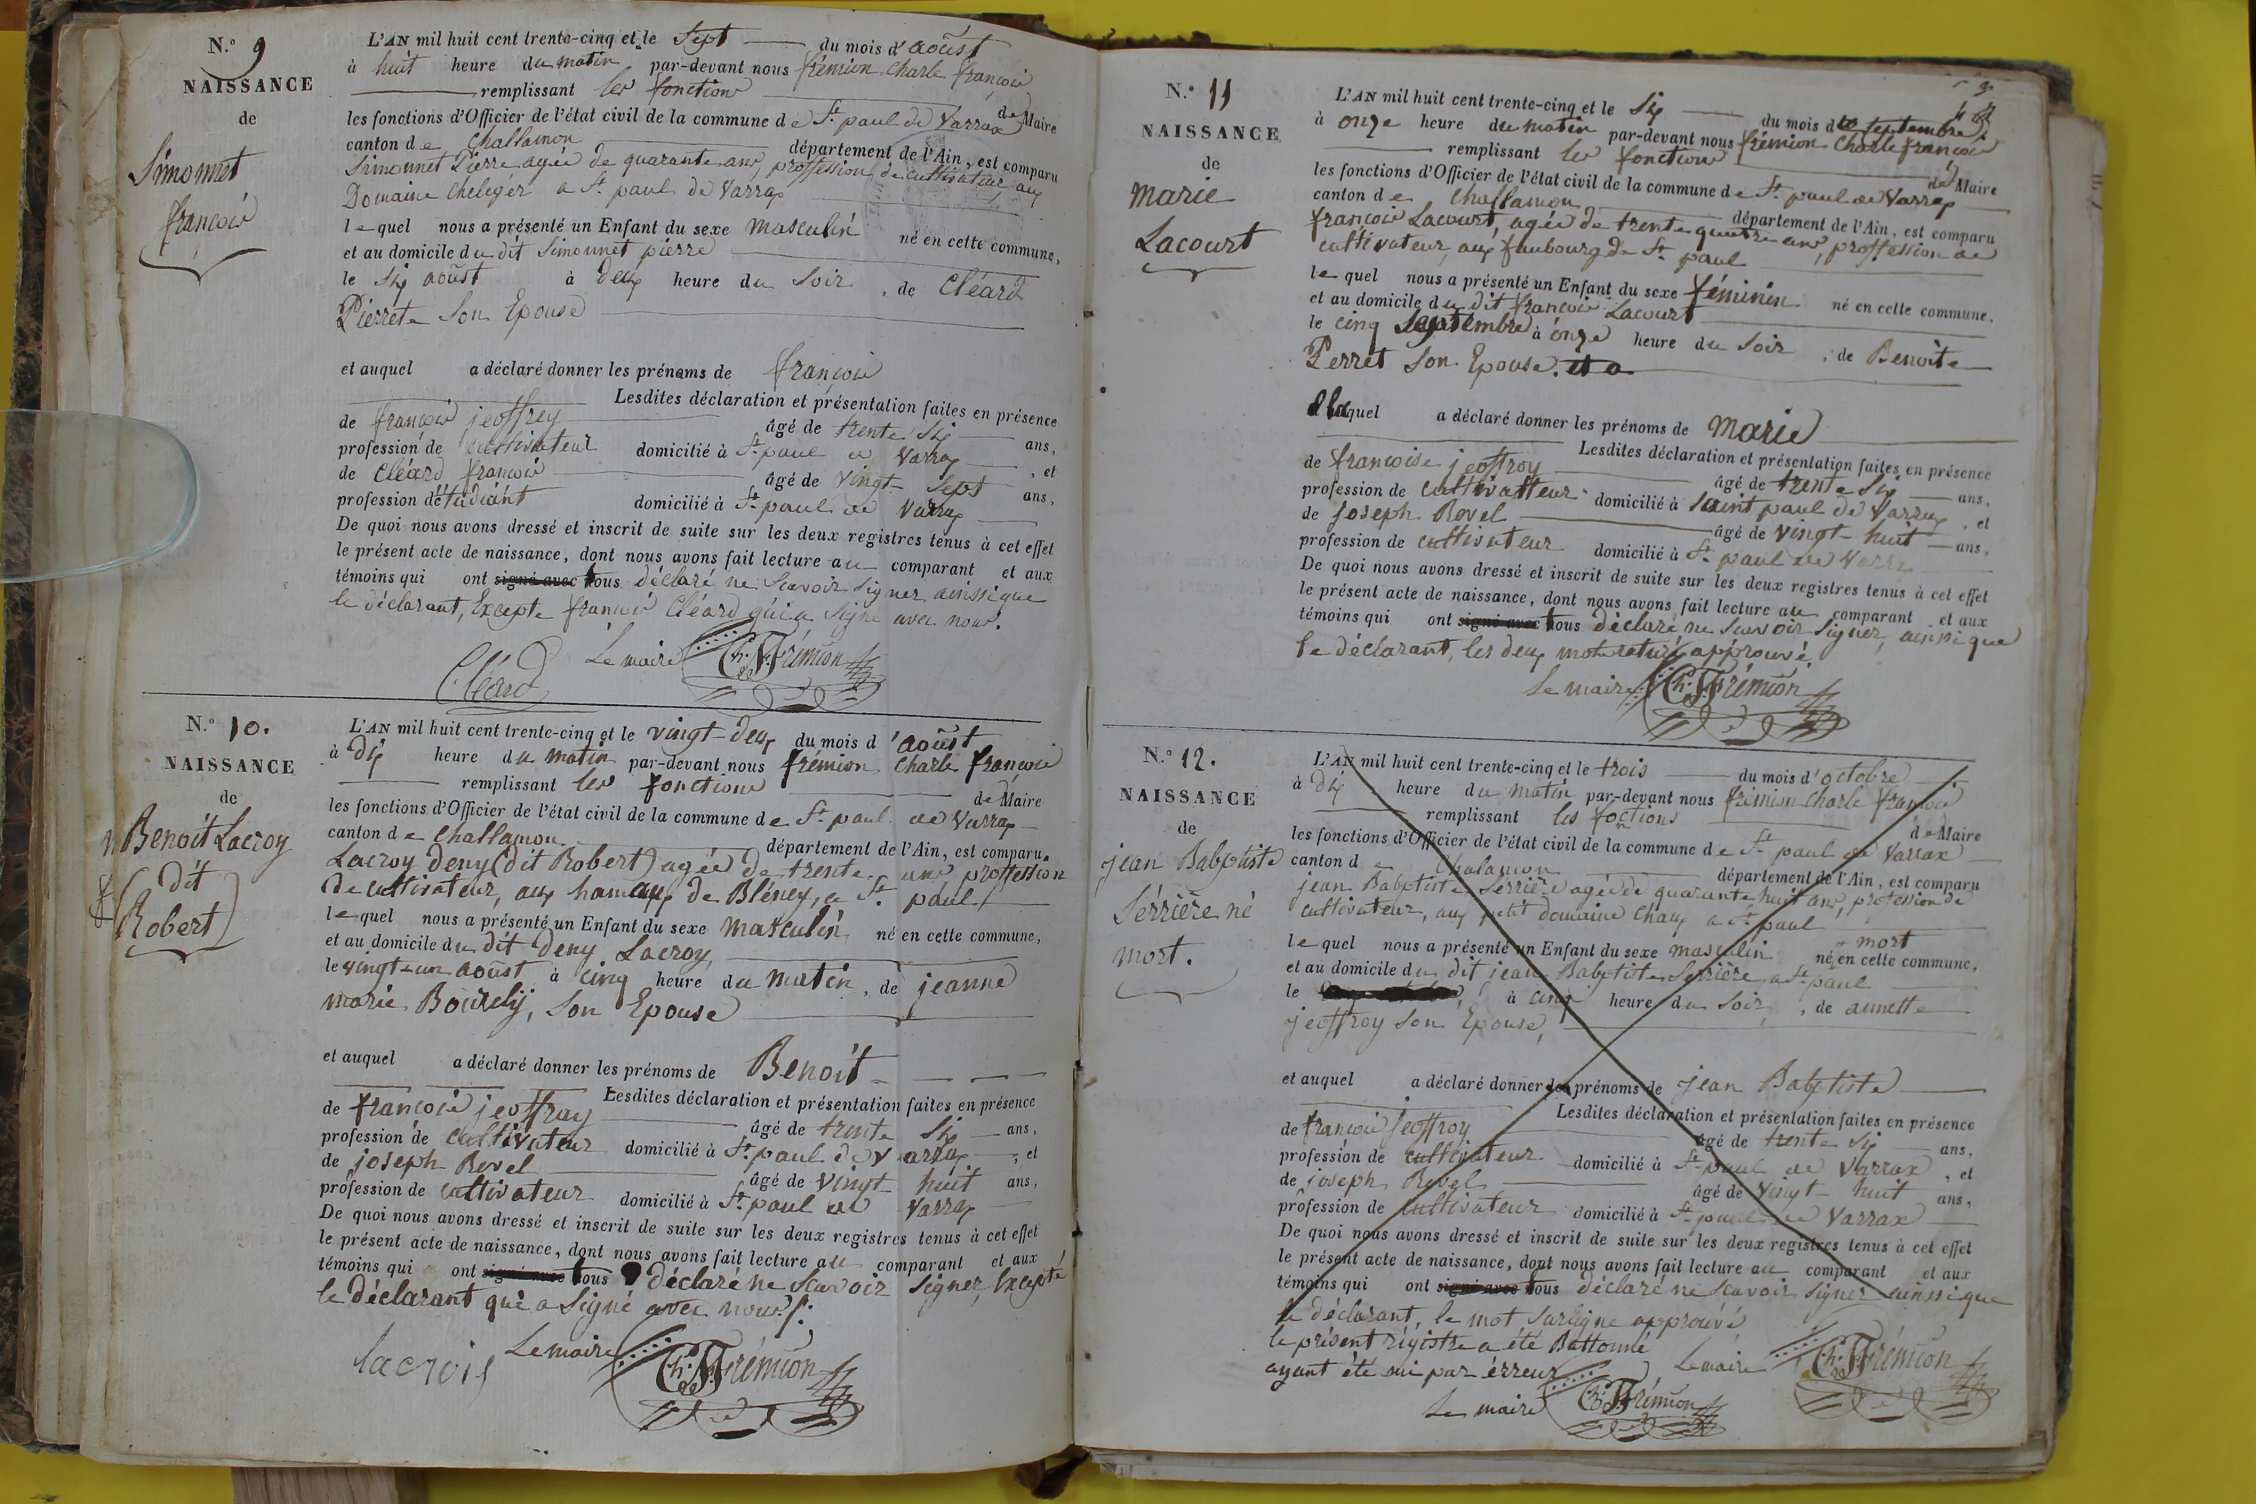 N.° 9
NAISSANCE
de
Simonnet
françois
L'AN mil huit cent trente-cinq et le Sept du mois d'aoûst
à huit heure du matin par-devant nous frémion Charle françois
remplissant les fonctions de Maire
les fonctions d'Officier de l'état civil de la commune de St. paul de Varrax
canton de Challamon département de l'Ain, est comparu
Simonnet Pierre agée de quarante ans, proffession de cultivateur aux
Domaine a St. paul de Varrax
lequel nous a présenté un Enfant du sexe masculin né en cette commune,
et au domicile du dit Simonnet pierre
le Six aoûst à deux heure du Soir, de Cléard
Pierrete Son Epouse
et auquel a déclaré donner les prénoms de françois
Lesdites déclaration et présentation faites en présence
de françois jeoffrey âgé de trente Six ans,
profession de cultivateur domicilié à St. paul de Varrax, et
de Cléard françois âgé de vingt Sept ans,
profession détudiant domicilié à St. paul de Varrax
De quoi nous avons dressé et inscrit de suite sur les deux registres tenus à cet effet
le présent acte de naissance, dont nous avons fait lecture au comparant et aux
témoins qui ont signé avec tous déclaré ne Scavoir Signer ainssi que
le déclarant, Excepte françois Cléard qui a Signé avec nous.
Le maire Ch. F. Frémion
Cléard
N.° 10.
NAISSANCE
de
Benoit Lacroy
(dit
Robert)
L'AN mil huit cent trente-cinq et le vingt-deux du mois d'aoûst
à dix heure du matin par-devant nous frémion Charle françois
remplissant les fonctions de Maire
les fonctions d'Officier de l'état civil de la commune de St. paul de Varrax
canton de Challamon département de l'Ain, est comparu
Lacroy Deny (dit Robert) agée de trente ans proffession
de cultivateur, aux hameaux de Bléney, a St. paul
lequel nous a présenté un Enfant du sexe masculin né en cette commune,
et au domicile du dit Deny Lacroy,
le vingt-un aoûst à cinq heure du matin, de jeanne
marie Son Epouse
et auquel a déclaré donner les prénoms de Benoit
Lesdites déclaration et présentation faites en présence
de françois jeoffray âgé de trente Six ans,
profession de cultivateur domicilié à St. paul de Varrax, et
de joseph Revel âgé de vingt huit ans,
profession de cultivateur domicilié à St. paul de Varrax
De quoi nous avons dressé et inscrit de suite sur les deux registres tenus à cet effet
le présent acte de naissance, dont nous avons fait lecture au comparant et aux
témoins qui ont signé avec tous déclaré ne Scavoir Signer, Excepté
le déclarant qui a Signé avec nous.
Le maire Ch. F. Frémion
lacrois
N.° 11
NAISSANCE
de
Marie
Lacourt
L'AN mil huit cent trente-cinq et le Six du mois de Septembre
à onze heure du matin par-devant nous frémion Charle françois
remplissant les fonctions de Maire
les fonctions d'Officier de l'état civil de la commune de St. paul de Varrax
canton de Challamon département de l'Ain, est comparu
françois Lacourt, agée de trente quatre ans, proffession de
cultivateur, aux faubourg de St. paul
lequel nous a présenté un Enfant du sexe féminin né en cette commune,
et au domicile du dit françois Lacourt
le cinq Septembre à onze heure du Soir, de Benoite
Perret Son Epouse. et a
a laquel a déclaré donner les prénoms de Marie
Lesdites déclaration et présentation faites en présence
de françoise jeoffroy âgé de trente Six ans,
profession de cultivatteur domicilié à Saint paul de Varrax, et
de joseph Revel âgé de vingt-huit ans,
profession de cultivateur domicilié à St. paul de Varrax
De quoi nous avons dressé et inscrit de suite sur les deux registres tenus à cet effet
le présent acte de naissance, dont nous avons fait lecture au comparant et aux
témoins qui ont signé avec tous déclaré ne Scavoir Signer, ainssi que
le déclarant, les deux mots raturé approuvé.
Le maire Ch. F. Frémion
N.° 12.
NAISSANCE
de
jean Babptiste
Sérrière né
mort.
L'AN mil huit cent trente-cinq et le trois du mois d'octobre
à dix heure du matin par-devant nous frémion Charle françois
remplissant les fonctions de Maire
les fonctions d'Officier de l'état civil de la commune de St. paul de Varrax
canton de Chalamon département de l'Ain, est comparu
jean Babptiste Serrière agée de quarante huit ans, profession de
cultivateur, aux petit domaine Chaux a St. paul
lequel nous a présenté un Enfant du sexe masculin né mort en cette commune,
et au domicile du dit jean Babptiste Serrière a St. paul
le à cinq heure du Soir, de annette
jeoffroy Son Epouse,
et auquel a déclaré donner les prénoms de jean Babptiste
Lesdites déclaration et présentation faites en présence
de françois jeoffroy âgé de trente Six ans,
profession de cultivateur domicilié à St. paul de Varrax, et
de joseph Revel âgé de vingt huit ans,
profession de cultivateur domicilié à St. paul de Varrax
De quoi nous avons dressé et inscrit de suite sur les deux registres tenus à cet effet
le présent acte de naissance, dont nous avons fait lecture au comparant et aux
témoins qui ont signé avec tous déclaré ne Scavoir Signer ainssi que
le déclarant, le mot Surligne approuvé
le présent régistre a été Battonné Le maire Ch. F. Frémion
ayant été mi par érreur
Le maire Ch. F. Frémion